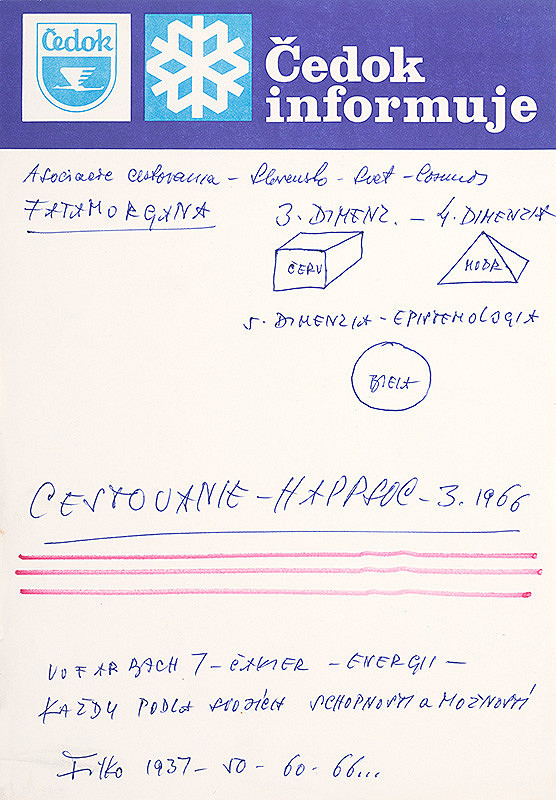 Čedok
Čedok
informuje
Asociacie cestovania - Slovensko - Svet - Cosmos
FATAMORGANA
3. DIMENZ. - 4. DIMENZIA
ČERV
MODR
5. DIMENZIA - EPISTEMOLOGIA
BIELA
CESTOVANIE - HAPPSOC - 3. 1966
VO FARBACH 7 - ČAKIER - ENERGII -
KAŽDÝ PODLA SVOJÍCH SCHOPNOSTÍ a MOŽNOSTÍ
Filko 1937 - 50 - 60 - 66...